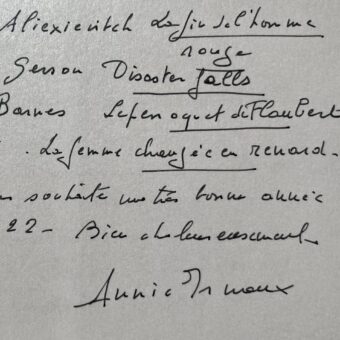 Aliexievitch La fin de l'homme
rouge
Gerson Disaster falls
Barnes Le perroquet de Flaubert
. La femme changée en renard.
souhaite une très bonne année
22 - Bien chaleureusement
Annie Ernaux